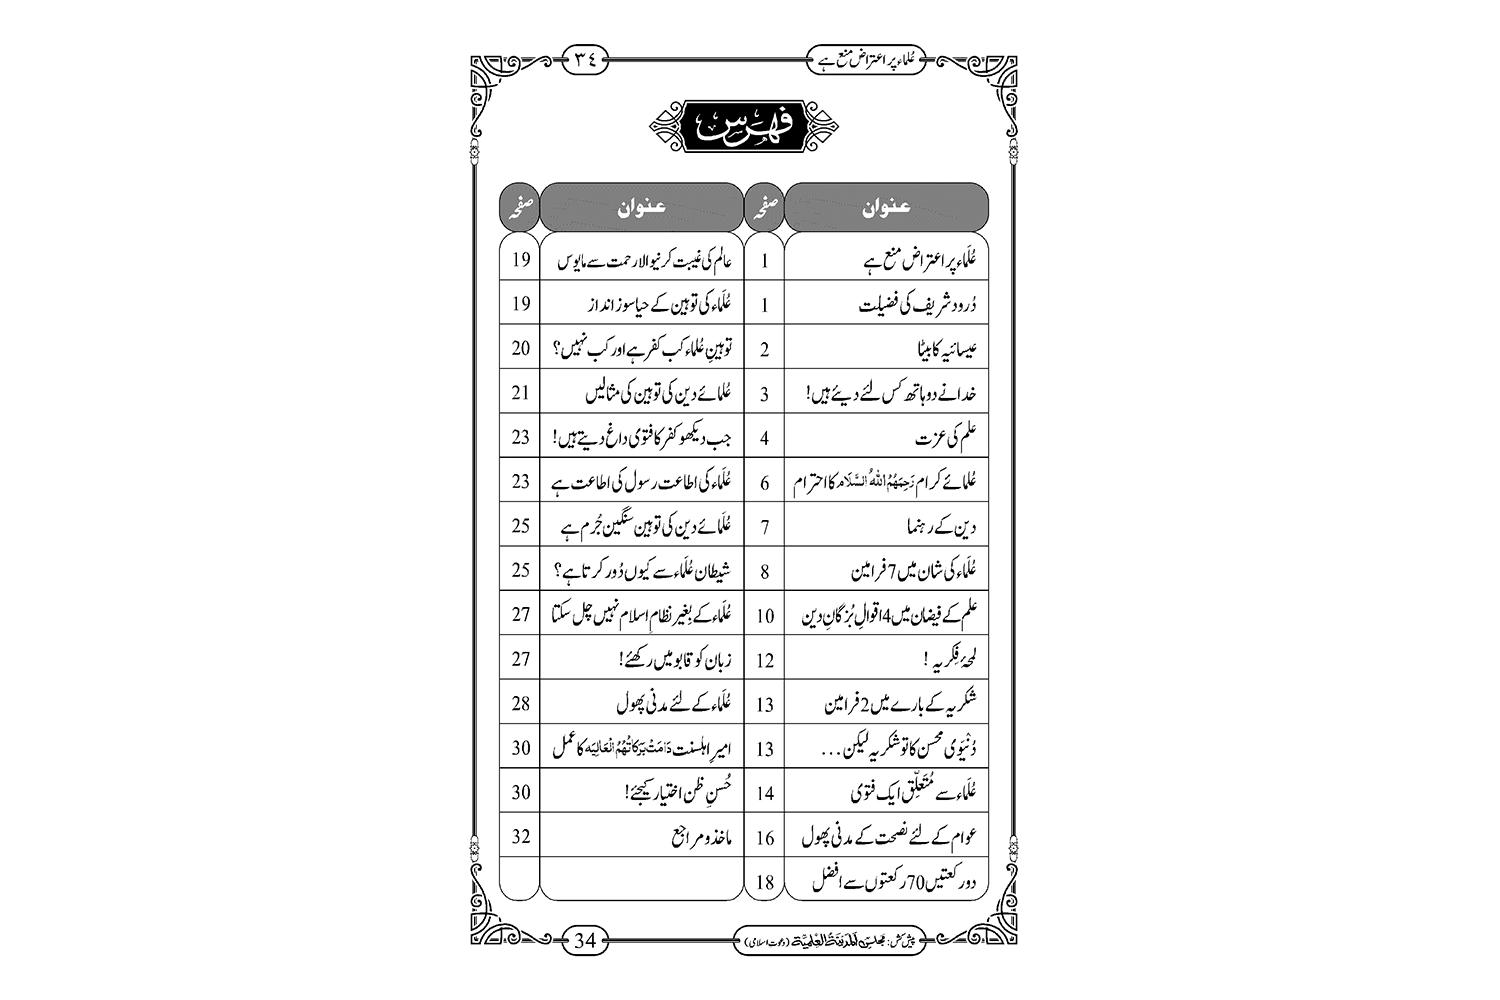 عُلَماء پر اعتراض منع ہے
٣٤
فہرس
عنوان صفحہ عنوان صفحہ
عُلَماء پر اعتراض منع ہے 1 عالم کی غیبت کرنیوالا رحمت سے مایوس 19
دُرود شریف کی فضیلت 1 عُلَماء کی توہین کے حیا سوز انداز 19
عیسائیہ کا بیٹا 2 توہینِ عُلماء کب کفر ہے اور کب نہیں؟ 20
خدا نے دو ہاتھ کس لئے دیئے ہیں! 3 عُلمائے دین کی توہین کی مثالیں 21
علم کی عزت 4 جب دیکھو کفر کا فتوی داغ دیتے ہیں! 23
عُلمائے کرام رَحِمَهُمُ اللهُ السَّلَام کا احترام 6 عُلَماء کی اطاعت رسول کی اطاعت ہے 23
دین کے رہنما 7 عُلَمائے دین کی توہین سنگین جُرم ہے 25
عُلَماء کی شان میں 7 فرامین 8 شیطان عُلَماء سے کیوں دُور کرتا ہے؟ 25
علم کے فیضان میں 4 اقوالِ بُزگانِ دین 10 عُلَماء کے بِغیر نظامِ اسلام نہیں چل سکتا 27
لمحۂ فِکریہ ! 12 زبان کو قابو میں رکھئے! 27
شکریہ کے بارے میں 2 فرامین 13 عُلَماء کے لئے مدنی پھول 28
دُنْیَوی محسن کا تو شکریہ لیکن ... 13 امیرِ اہلسنت دَامَتْ بَرَكَاتُهُمُ الْعَالِيَه کا عمل 30
عُلَماء سے مُتَعَلِّق ایک فتوی 14 حُسنِ ظن اختیار کیجئے! 30
عوام کے لئے نصحت کے مدنی پھول 16 ماخذ و مراجع 32
دو رکعتیں 70 رکعتوں سے افضل 18
پیش کش: مجلس المدینۃ العلمیۃ (دعوت اسلامی)
34